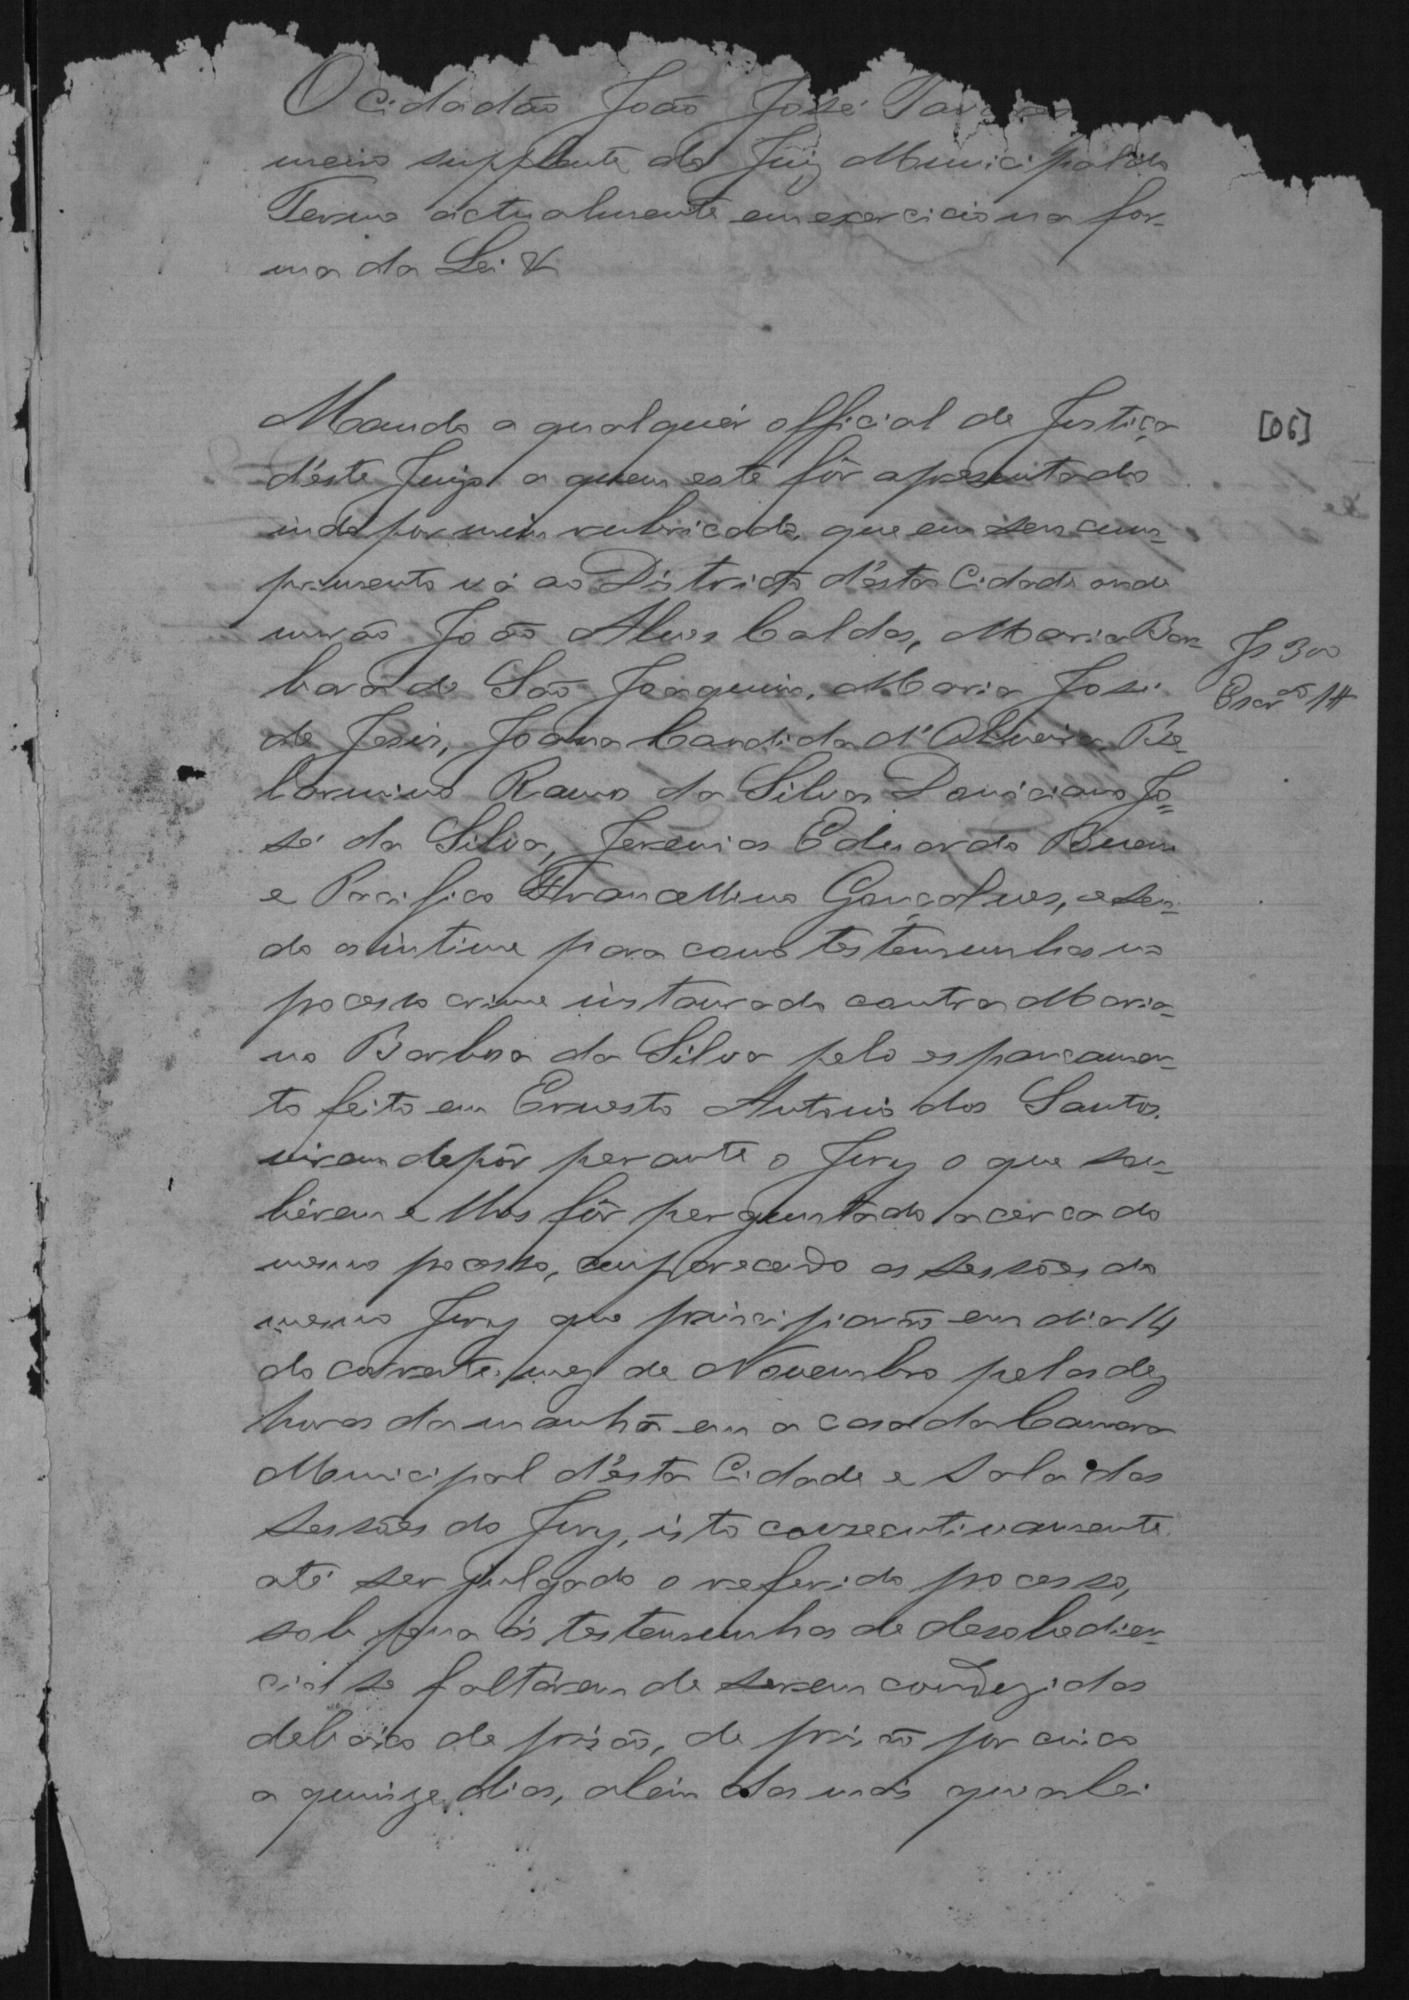 O cidadão João José Tavares
meiro supplente do Juiz Municipal do
Termo actualmente em exercicio na for-
ma da Lei &
Mando a qualquér official de Justiça
déste Juizo a quem este fôr apresentado
indo por mim rubricado, que em seu cum-
primento vá ao Districto d'ésta Cidade onde
morão João Alves Caldas, Maria Bar-
bara de São Joaquim, Maria José
de Jesus, Joana Candida d'Oliveira, Be-
larmino Ramo da Silva, Donaciano Jo-
sé da Silva, Jeremias Eduardo Buem
e Pacifico Francellino Gonçalves, e sen-
do os intime para como testemunhas no
pocesso crime instaurado contra Maria-
no Barbosa da Silva pelo espancamen-
to feito em Ernesto Antonio dos Santos.
viram depôr perante o Jury o que sou-
bérem e lhes fôr perguntado acerca do
mesmo pocesso, comparecendo as sessões do
mesmo Jury que principiarão em dia 14
do corrente mez de Novembro pelas dez
horas da manhã em a casa da Camara
Municipal d'ésta Cidade e Sala das
Sessões do Jury, isto consecutivamente
até ser julgado o referido pocesso,
sob pena ás testemunhas de desobedien-
cia se faltárem de serem conduzidas
debaixo de prisão, de prisão por cinco
a quinze dias, além das mais que a lei
[06]
Js 300
Escr.ão 1#